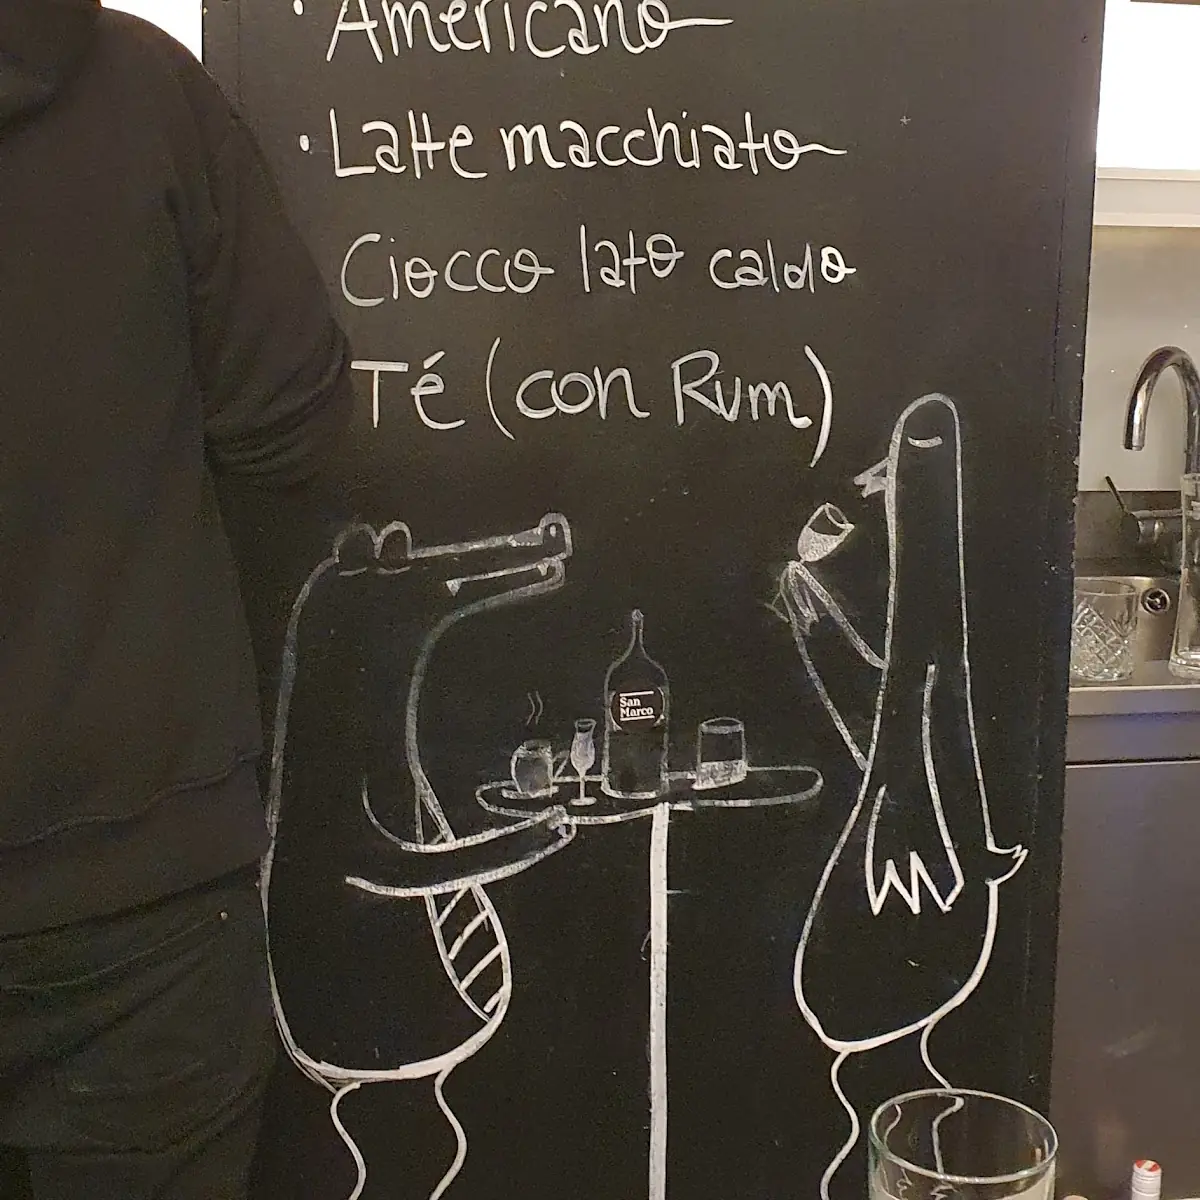 · Americano
· Latte macchiato
Ciocco lato caldo
Té (con Rum)
San
Marco